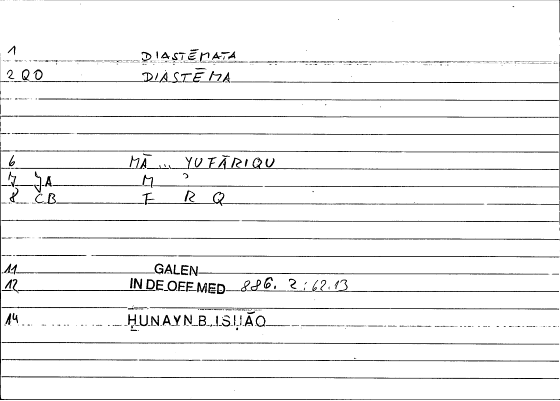 1 DIASTĒMATA
2 QD DIASTĒMA
6 MĀ ... YUFĀRIQU
7 JA M ʾ
8 CB F R Q
11 GALEN
12 IN DE OFF MED 886. 2 : 62.13
14 ḤUNAYN B. ISḤĀQ